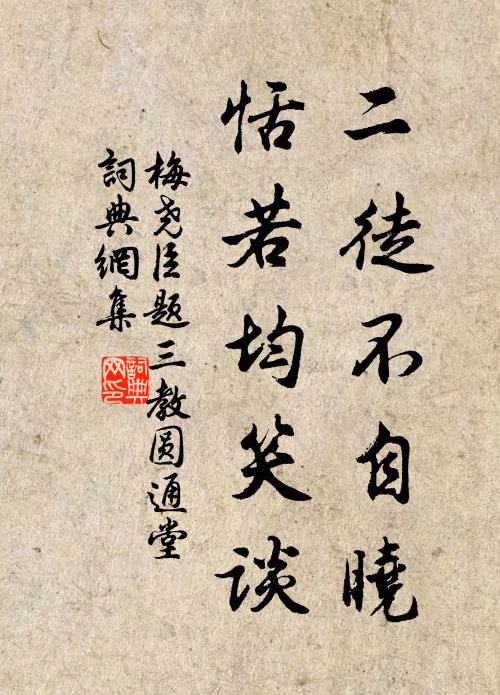 二徒不自曉
恬若均笑談
梅尧臣題三教圆通堂
詞典網集
詞典网印